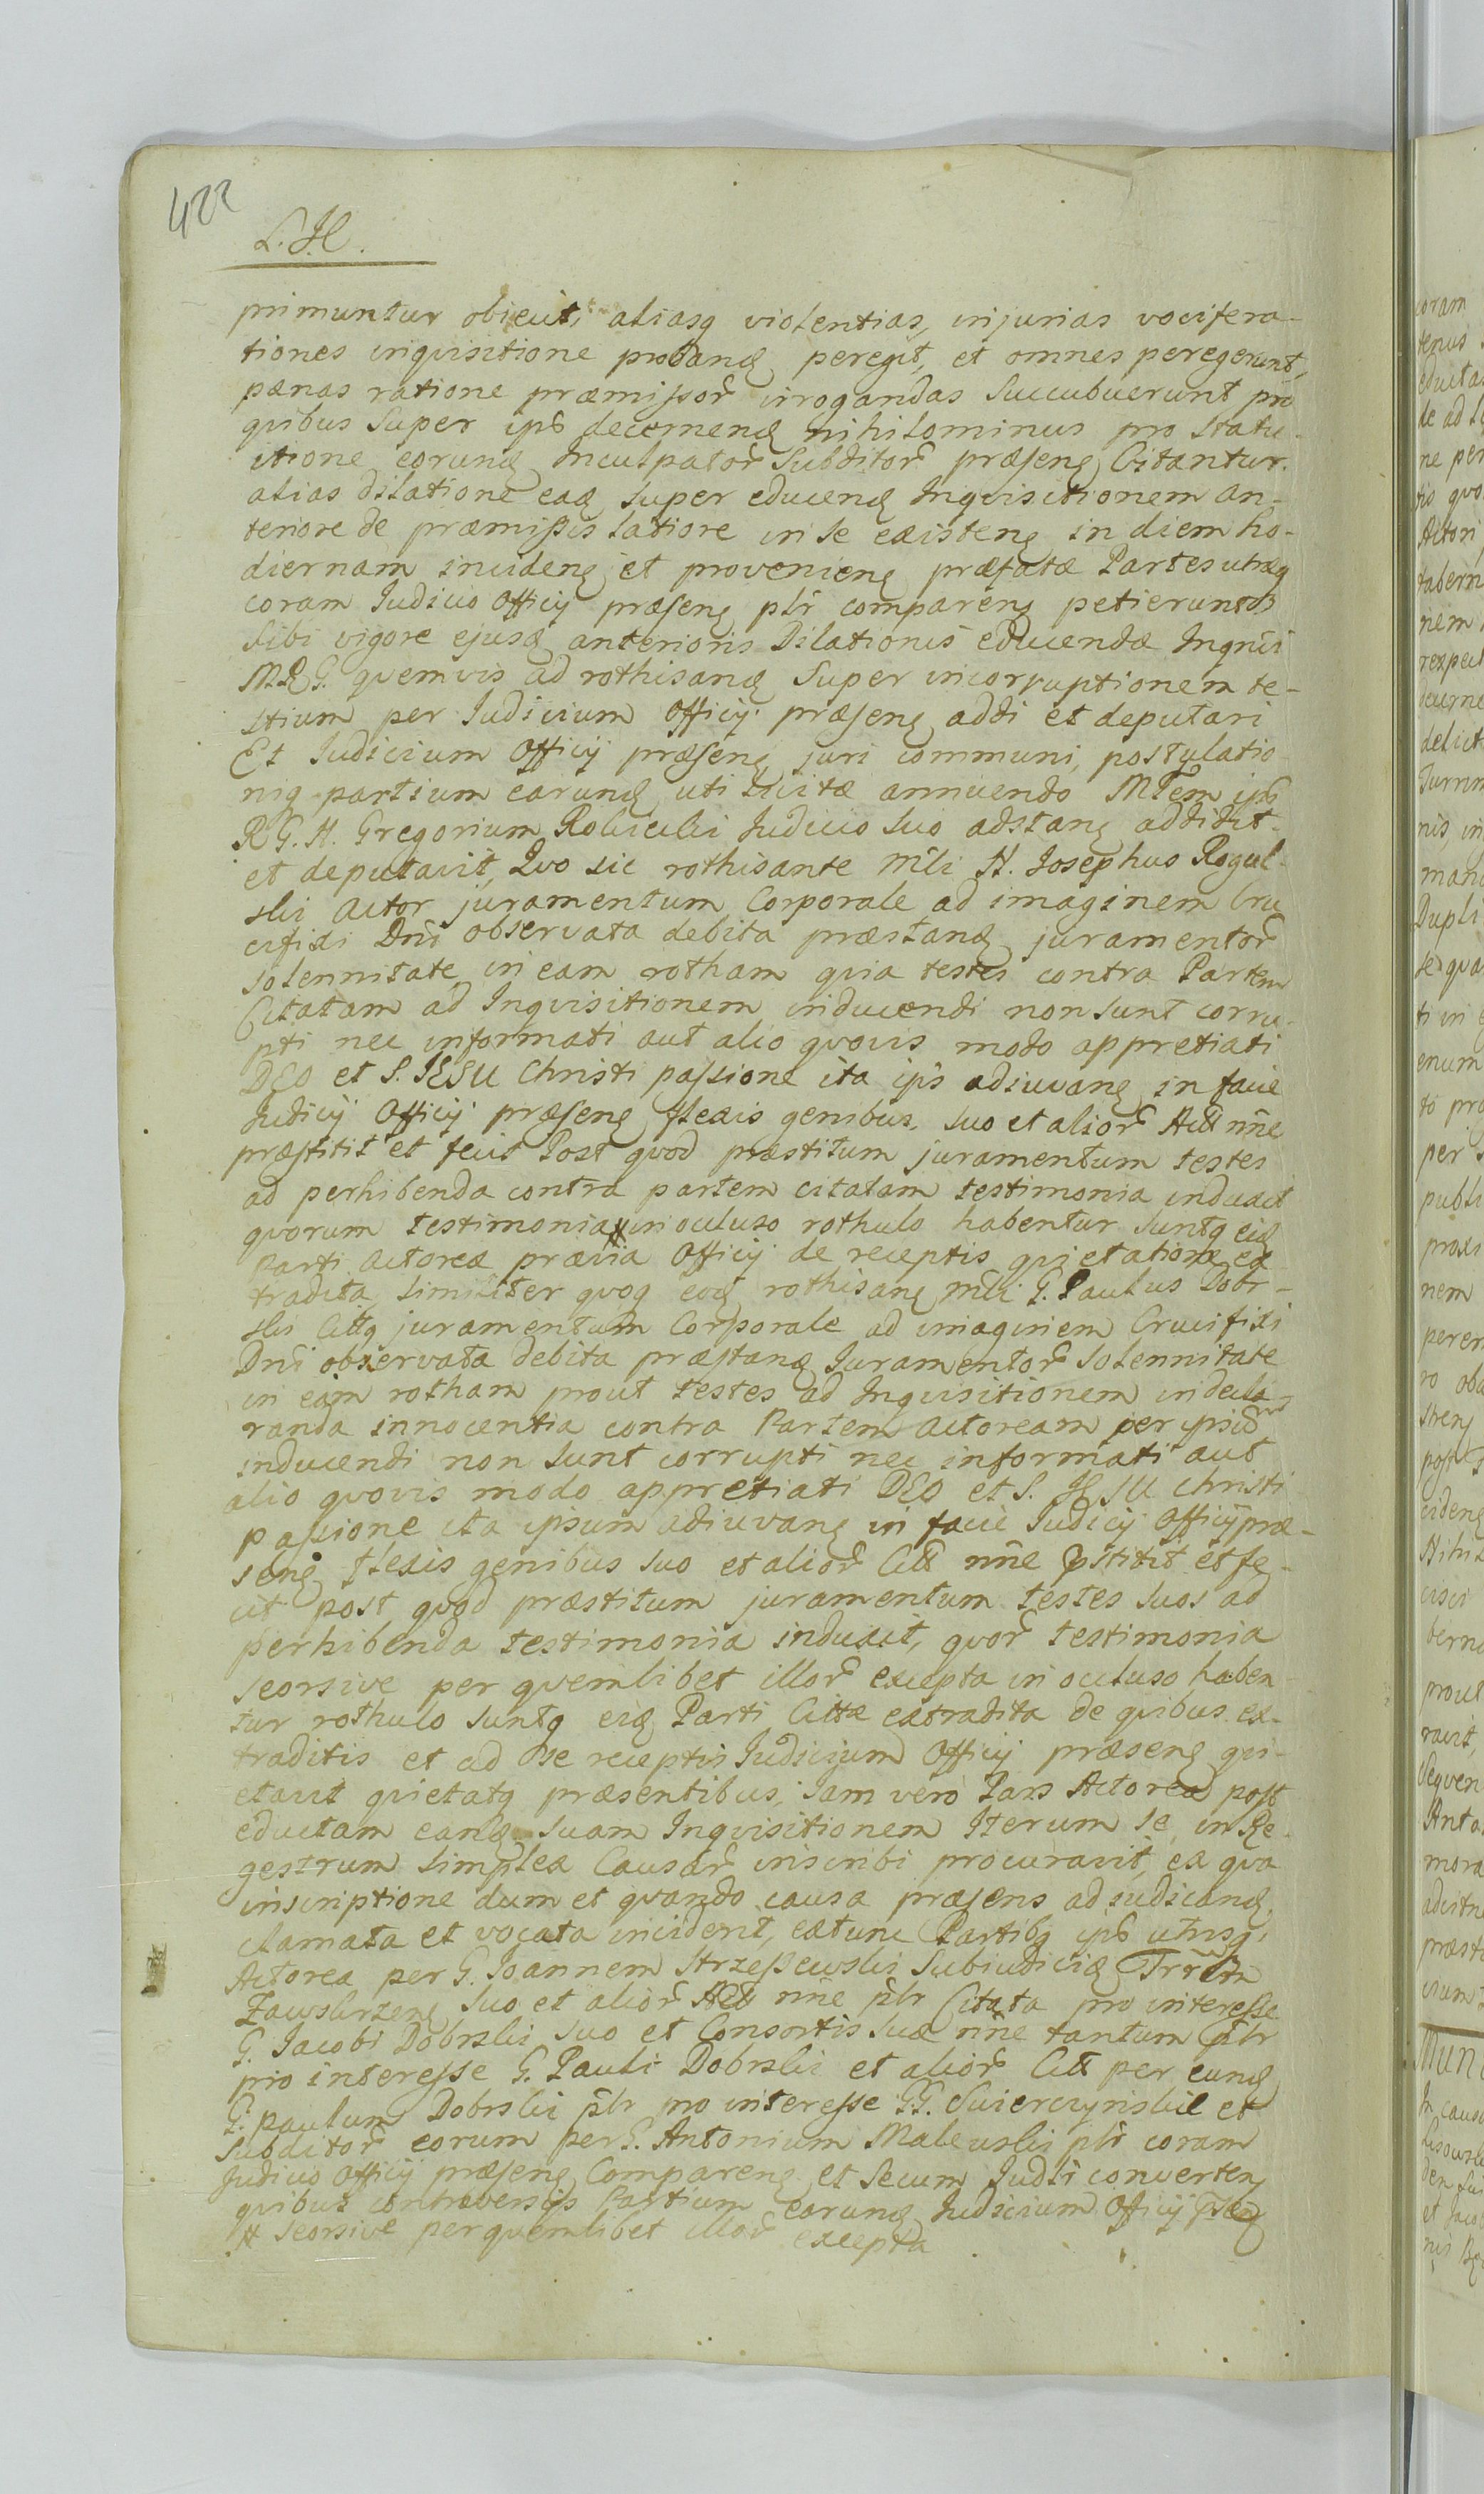 422
L. H.
primuntur obiecit, aliasq violentias, injurias vocifera-
tiones inquisitione proband peregit, et omnes peregerunt,
pænas ratione præmissor irrogandas Succubuerunt pro
quibus Super ips decernend nihilominus pro Statu-
itione eorund Inculpator Subditor præsens Citantur.
alias dilatione ead super educend Inquisitionem an-
teriore de præmissis latiore in se existen in diem ho-
diernam inciden et provenien præfatæ Partes utræq
coram Iudicio Officij præsen plr comparen petierunt
Sibi vigore ejusd anterioris Dilationis educendæ Inqnis
quemvis ad rothisand Super incorruptionem te-
stium per Iudicium Officij præsen addi et deputari
Et Iudicium Officij præsen juri communi, postulatio-
niq partium earund uti licitæ annuendo MTem ips
R G. H. Gregorium Robicki Iudicio suo adstan addidit
et deputavit, Quo sic rothisante Mli H. Josephus Rogul-
ski Actor juramentum Corporale ad imaginem Cru
cifixi Dni observata debita præstand juramentor
solennitate in eam rotham quia testes contra Partem
Citatam ad Inquisitionem inducendi non sunt corru-
pti nec informati aut alio quovis modo appretiati
DEO et S. IESU Christi passione ita ips adiuvan in facie
Iudicij Officij præsen flexis genibus suo et alior Act nne
præstitit et fecit Post quod præstitum juramentum testes
ad perhibenda contra partem citatam testimonia induxit
quorum testimonia # in occluso rothulo habentur suntq eid
Parti Actoreæ prævia Officij de receptis quietatione ex
tradita similiter quoq eod rothisan Mli G. Paulus Dobr-
ski Cittq juramentum Corporale ad imaginem Crucifixi
Dni observata debita præstand Iuramentor Solennitate
in eam rotham prout testes ad Inquisitionem in decla
randa innocentia contra Partem Actoream per ipsum
inducendi non sunt corrupti nec informati aut
alio quovis modo appretiati DEO et S. JESU Christi
passione ita ipsum adiuvan in facie Iudicij Officij præ-
sen flexis genibus suo et alior Citt nne pstitit et fe-
cit post quod præstitum juramentum testes suos ad
perhibenda testimonia induxit, quor testimonia
seorsive per quemlibet illor excepta in occluso haben
tur rothulo suntq eid Parti Cittæ extradita de quibus ex-
traditis et ad se receptis Iudicium Officij præsen qui-
etavit quietatq præsentibus, Iam vero Pars Actorea post
eductam eand suam Inquisitionem Iterum se in Re-
gestrum simplex Causar inscribi procuravit, ex qua
inscriptione dum et quando causa præsens ad iudicand
clamata et vocata inciderit, extunc Partibq ips utrisq,
Actorea per G. Ioannem Strzeszewski Subiudicid Trrm
Zawskrzen suo et alior Act nne plr Citata pro interesse
G. Jacobi Dobrski suo et Consortis suæ nne tantum plr
pro interesse G. Pauli Dobrski et alior Citt per eund
G. Paulum Dobrski plr pro interesse G.G. Swierczynskie et
Subditor eorum per G. Antonium Malewski plr coram
Iudicio Officij præsen Comparen et secum Iudli converten
quibus controversijs Partium earund Iudicium Officij psen
# seorsive per quemlibet illor excepta